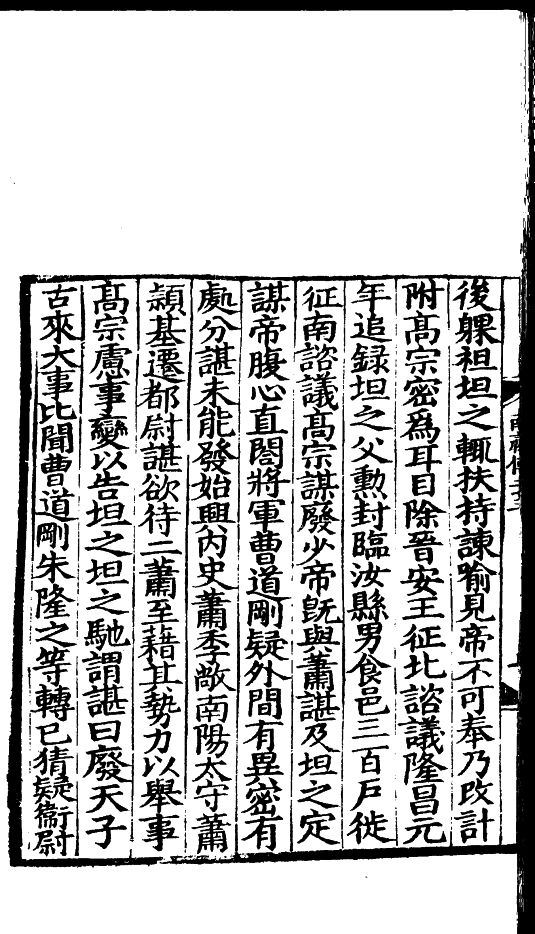 後躶袒坦之輒扶持諫喻見帝不可奉乃改計
附髙宗密爲耳目除晉安王征北諮議隆昌元
年追録坦之父勲封臨汝縣男食邑三百戸徙
征南諮議髙宗謀廢少帝旣與蕭諶及坦之定
謀帝腹心直閤將軍曹道剛疑外間有異密有
處分諶未能發始興内史蕭季敞南陽太守蕭
頴基遷都尉諶欲待二蕭至藉其勢力以舉事
髙宗慮事變以告坦之坦之馳謂諶曰廢天子
古來大事比聞曹道剛朱隆之等轉已猜疑衞尉